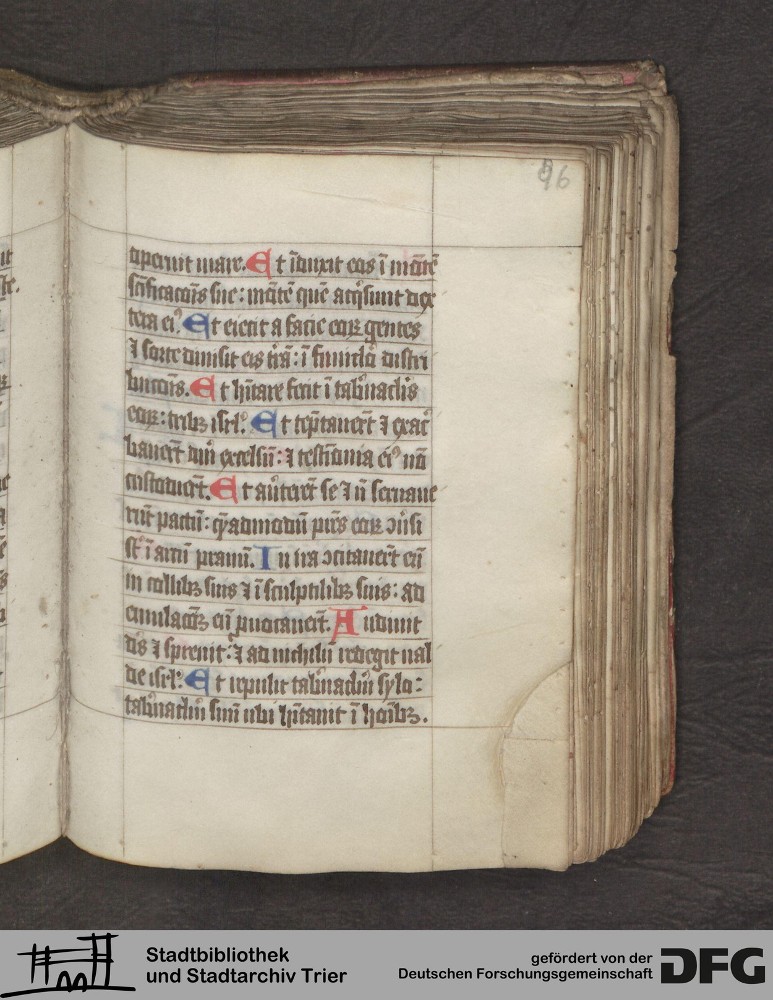 96
operuit mare. Et īduxit eos ī mōtē
scīficacōīs sue: mōtē quē acq̄siuit dex
tera ei⁹. Et eiecit a facie eoꝝ gentes
⁊ sorte diuisit eis t̄rā: ī funiclō distri
bucōis. Et h̄itare fecit ī tab̄naclīs
eoꝝ: tribꝫ isrl̄. Et tēptauerūt ⁊ exac
bauerūt dm̄ excelsū: ⁊ testīonia ei⁹ nō
custodierūt. Et au̓terūt se ⁊ n̄ seruaue
rūt pactū: q̄admodū pr̄es eoꝝ ↄūsi
sūt ī arcū prauū. In ira ↄcitauerūt eū
in collibꝫ suis ⁊ ī sculptilibꝫ suis: ad
emulacōꝫ eū ꝓuocauerūt. Audiuit
dīs ⁊ spreuit: ⁊ ad nichilū redegit ual
de isrl̄. Et repulit tab̄naclm̄ sylo:
tab̄naclm̄ suū ubi h̄itauit ī hoībꝫ.
Stadtbibliothek
und Stadtarchiv Trier
gefördert von der
Deutschen Forschungsgemeinschaft
DFG